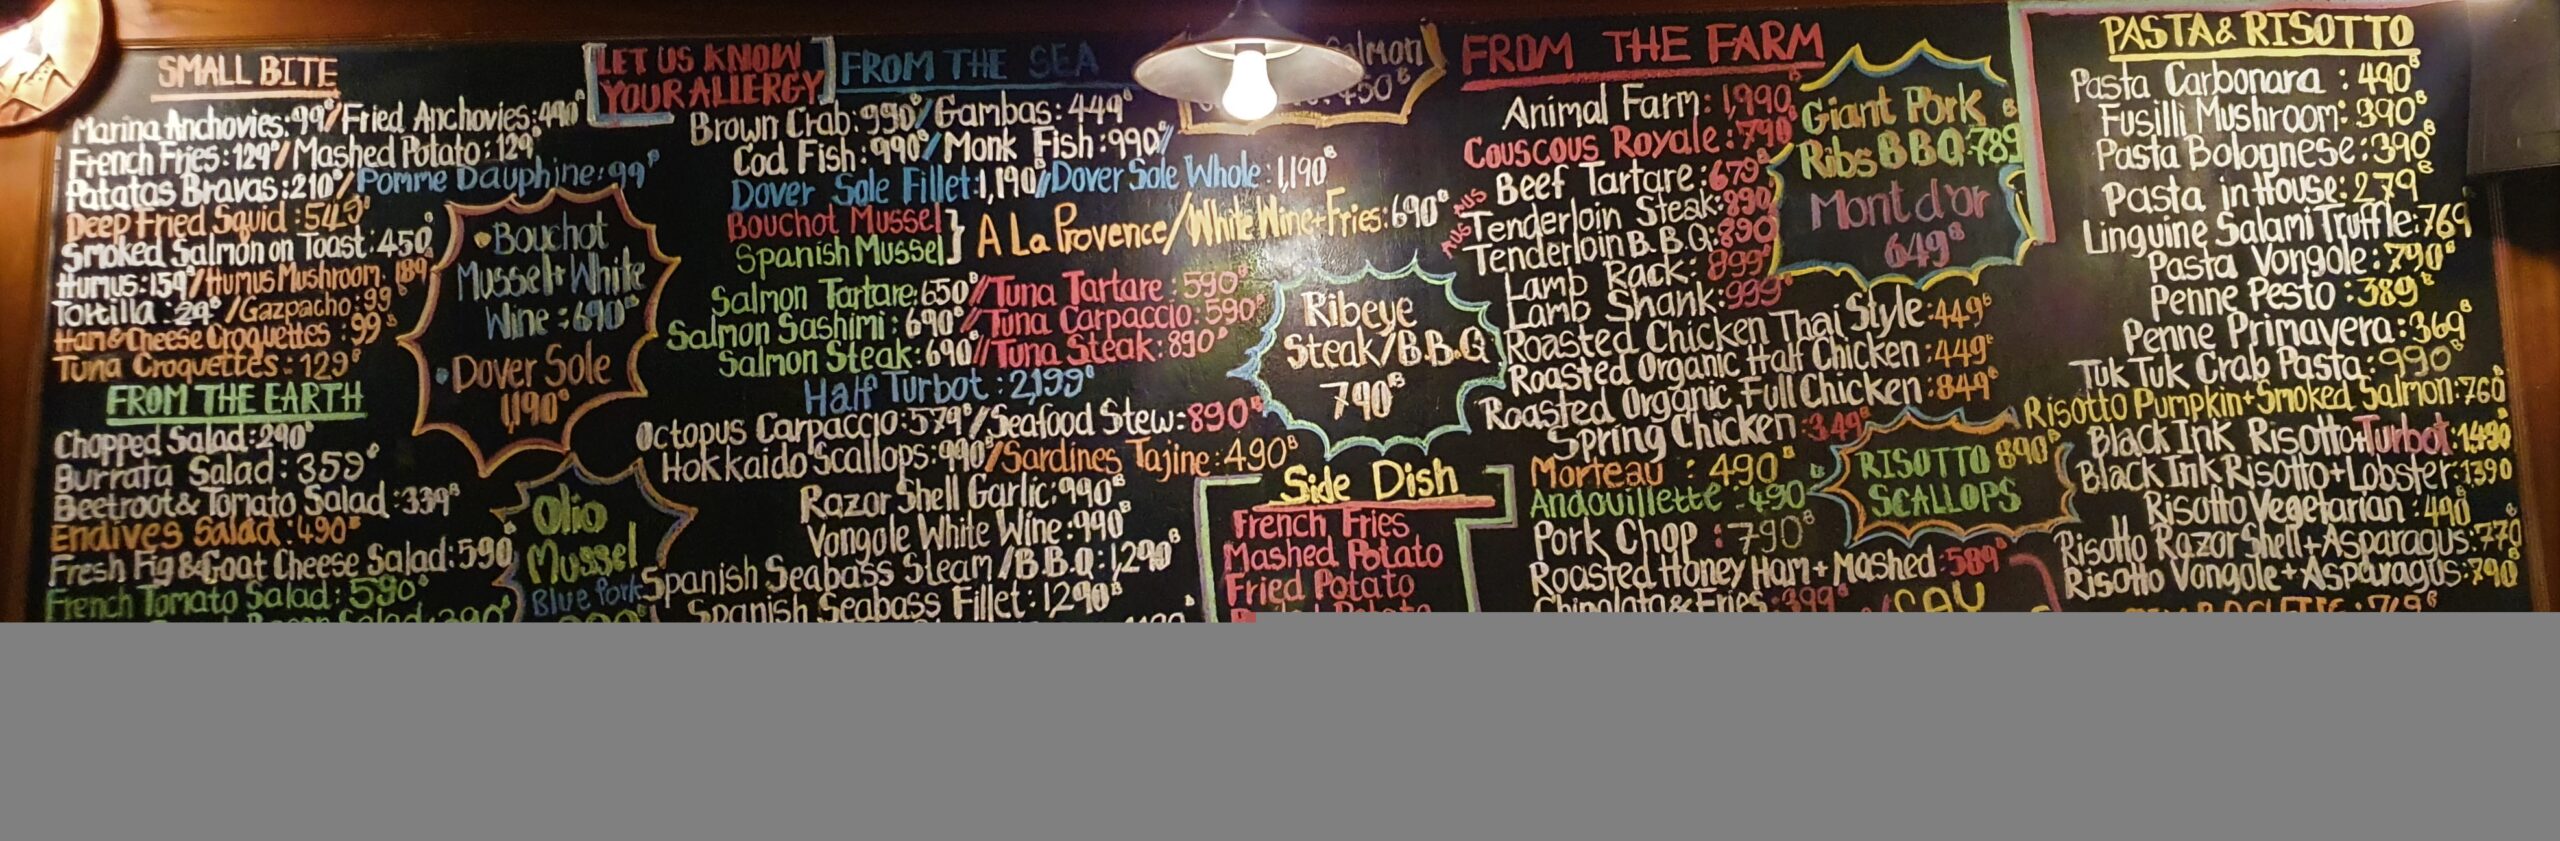 SMALL BITE
Marina Anchovies:99฿/Fried Anchovies:490฿
French Fries:129฿/Mashed Potato:129฿
Patatas Bravas:210฿/Pomme Dauphine:99฿
Deep Fried Squid:549฿
Smoked Salmon on Toast:450
Humus:159฿/Humus Mushroom.189
Tortilla:29฿/Gazpacho:99฿
Ham&Cheese Croquettes:99฿
Tuna Croquettes:129฿
FROM THE EARTH
Chopped Salad:290฿
Burrata Salad:359฿
Beetroot&Tomato Salad:339฿
Endives Salad:490฿
Fresh Fig &Goat Cheese Salad:590
French Tomato Salad:590฿
Salad:390฿
LET US KNOW
YOUR ALLERGY
•Bouchot
Mussel+White
Wine:690฿
•Dover Sole
1,190฿
Olio
Mussel
Blue Pork
FROM THE SEA
Brown Crab:990฿/Gambas:449฿
Cod Fish:990฿/Monk Fish:990฿/
Dover Sole Fillet:1,190฿/Dover Sole Whole:1,190฿
Bouchot Mussel
Spanish Mussel} A La Provence/White Wine+Fries:690฿
Salmon Tartare:650฿//Tuna Tartare:590฿
Salmon Sashimi:690฿//Tuna Carpaccio:590฿
Salmon Steak:690฿//Tuna Steak:890฿
Half Turbot:2,199฿
Octopus Carpaccio:579฿/Seafood Stew:890฿
Hokkaido Scallops:990฿/Sardines Tajine:490฿
Razor Shell Garlic:990฿
Vongole White Wine:990฿
Spanish Seabass Steam/B.B.Q:1,290฿
Spanish Seabass Fillet:1290฿
Salmon
450฿
Ribeye
Steak/B.B.Q
790฿
Side Dish
French Fries
Mashed Potato
Fried Potato
Potato
FROM THE FARM
Animal Farm:1,990฿
Couscous Royale:790฿
Beef Tartare:679฿
AUS Tenderloin Steak:890
AUS Tenderloin B.B.Q:890
Lamb Rack:899฿
Lamb Shank:999฿
Roasted Chicken Thai Style:449฿
Roasted Organic Half Chicken:449฿
Roasted Organic Full Chicken:849฿
Spring Chicken:349฿
Morteau:490฿
Andouillette:490
Pork Chop:790฿
Roasted Honey Ham+Mashed:589฿
Chipolata&Fries:399฿
Giant Pork
Ribs BBQ:789฿
Mont d'or
649฿
RISOTTO 890฿
SCALLOPS
PASTA& RISOTTO
Pasta Carbonara:490฿
Fusilli Mushroom:390฿
Pasta Bolognese:390฿
Pasta in House:279฿
Linguine Salami Truffle:769
Pasta Vongole:790฿
Penne Pesto:389฿
Penne Primavera:369฿
Tuk Tuk Crab Pasta:990฿
Risotto Pumpkin+Smoked Salmon:760
Black Ink Risotto+Turbot:1490
Black Ink Risotto+Lobster:1390
Risotto Vegetarian:490฿
Risotto Razor Shell+Asparagus:770
Risotto Vongole+Asparagus:790฿